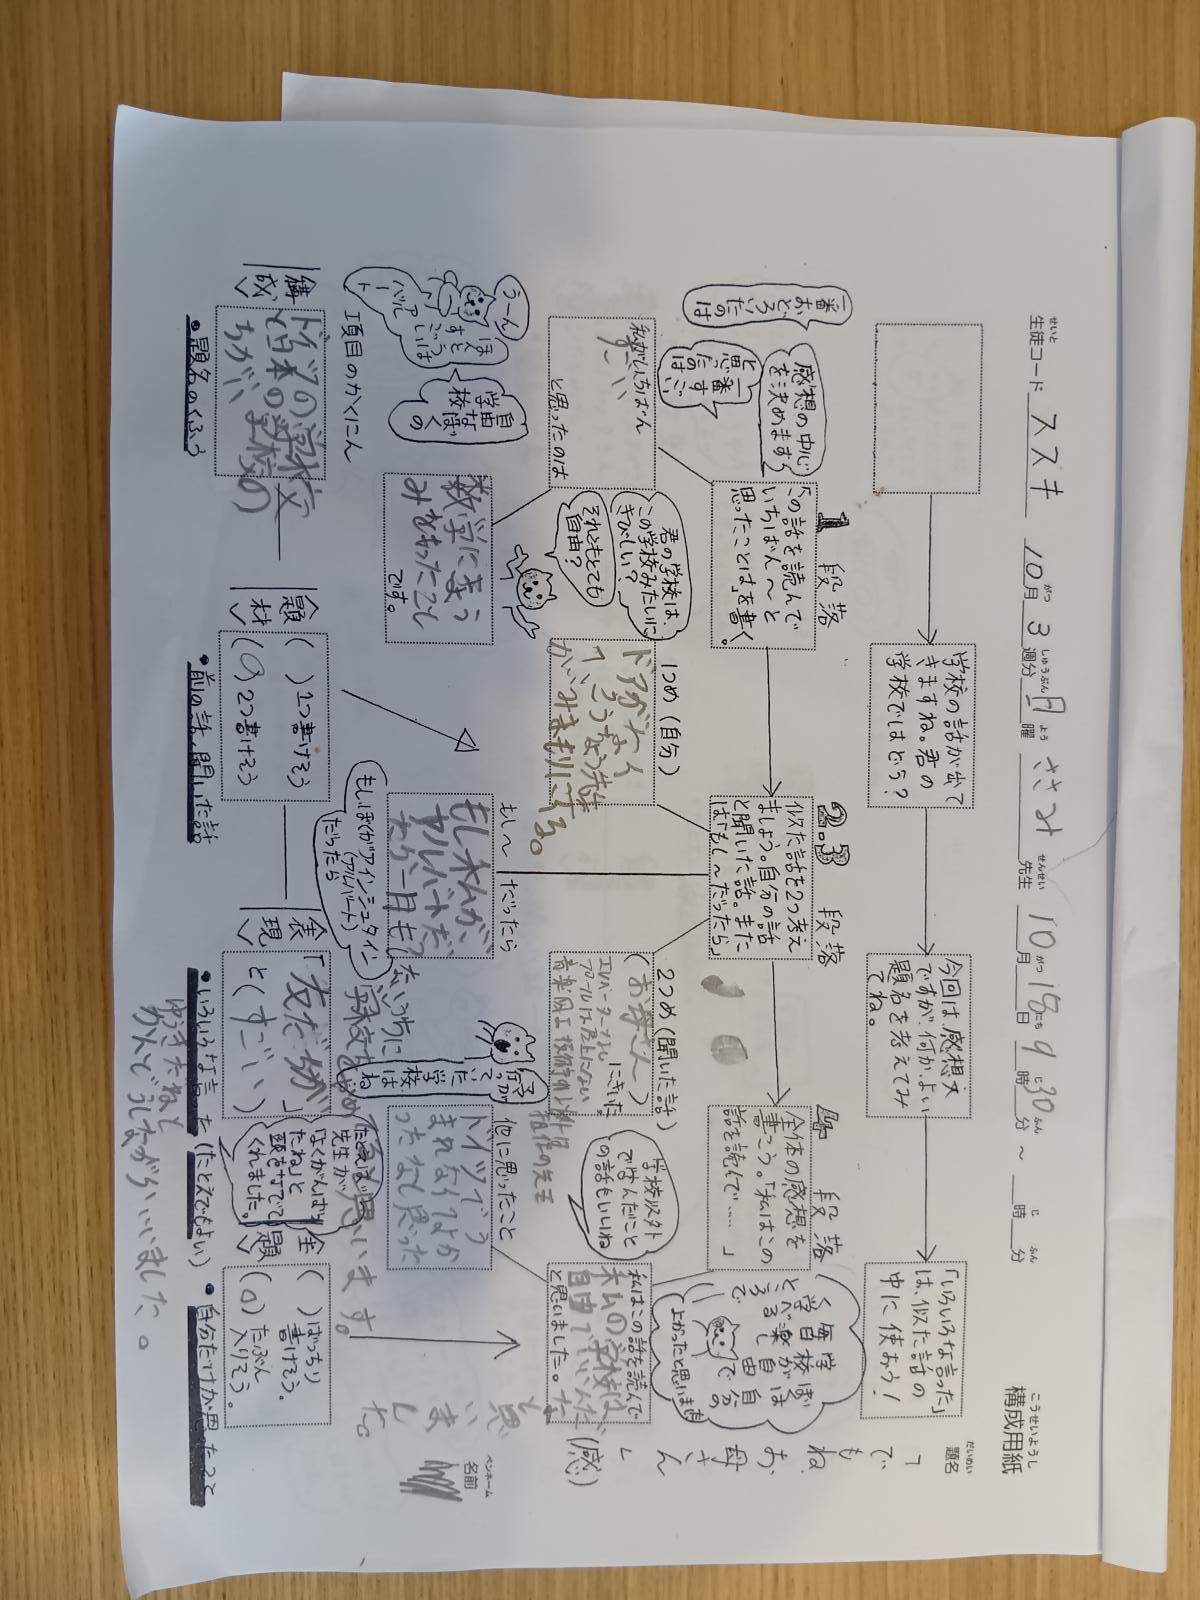 構成用紙
生徒コード スズキ 10月3週分 月曜 ささみ先生 10月18日9時30分～ 時 分
題名
「でもね、お母さん」(感)
ペンネーム
名前
学校の話が出て
きますね。君の
学校ではどう？
今回は感想文
ですが、何かよい
題名を考えてみ
てね。
「いろいろな言った」
は、似た話の
中に使おう！
1段落
「の話を読んで
いちばん～と
思ったことは」を書く。
2.3段落
似た話を2つ考え
ましょう。自分の話
と聞いた話。また
は「もし～だったら」
4段落
全体の感想を
書こう。「私はこの
話を読んで……」
一番おどろいたのは
感想の中心
を決めます
一番すごい
と思ったのは
私がいちばん
すごい
と思ったのは
数学にきょう
みをもったこと
です。
君の学校は、
この学校みたいに
きびしい？
それともとても
自由？
1つめ(自分)
ドアがなく
て、こうちょう先生
が、みまもりにくる。
もし～だったら
もし私が、
アルバートだっ
たら、一日も
もしぼくがアインシュタイン
(アルバート)
だったら
2つめ(聞いた話)
(お母さん)
にきいた
エレベーターなし
プールは屋上にない
担任の先生
ママが
行っ
ていた学
校はね
学校以外
で学んだこと
の話もいいね
他に思ったこと
ドイツでう
まれなくてよか
ったなと思った
私はこの話を読んで
私の学校は
自由でいいんだな
と思いました。
と思いました。
学校がぼくは
毎日楽し
く学べる自由
ところで自分の
でよかったと思います
うーん
ほんとう
すごいなあ
アルバート
自由な
学校
ぼくの
項目のかくにん
構成
ドイツの学校
と日本の学校の
ちがい
・題名のくふう
題材
( )1つ書けそう
(○)2つ書けそう
・前の話、聞いた話
表現
「友だちが」
と(すごい)
・いろいろな言った(たとえでもよい)
たとえば
先生が
「よくがんばっ
たね」と
頭をなでて
くれました。
ゆうきだねと
かんどうしながらいいました。
主題
( )ばっちり
書けそう。
(○)たぶん
入りそう。
・自分だけが思ったこと